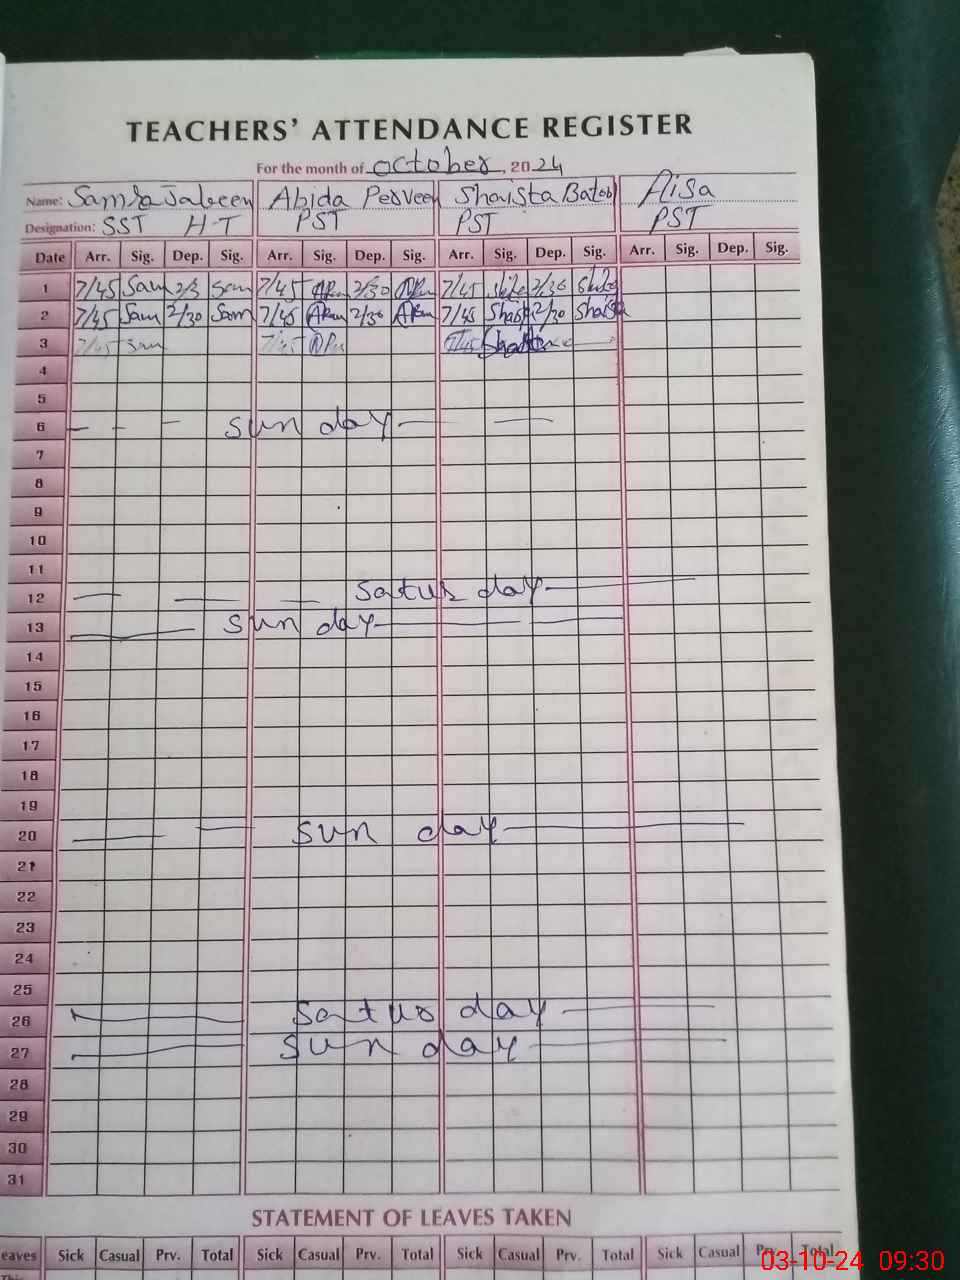 TEACHERS' ATTENDANCE REGISTER
For the month of october, 2024
Name: Samra Jabeen Abida Perveen Shaista Batol Alisa
Designation: SST H-T PST PST PST
Date Arr. Sig. Dep. Sig. Arr. Sig. Dep. Sig. Arr. Sig. Dep. Sig. Arr. Sig. Dep. Sig.
1 7/45 Sam 2/3 Sam 7/45 2/30 7/45 2/30
2 7/45 Sam 2/30 Sam 7/45 2/30 7/45 Shaist 2/30 Shaista
3 7/45 Sam 7/45 7/45
4
5
6 sun day
7
8
9
10
11
12 satur day
13 sun day
14
15
16
17
18
19
20 sun day
21
22
23
24
25
26 satur day
27 sun day
28
29
30
31
STATEMENT OF LEAVES TAKEN
eaves Sick Casual Prv. Total Sick Casual Prv. Total Sick Casual Prv. Total Sick Casual Prv. Total
This
03-10-24 09:30